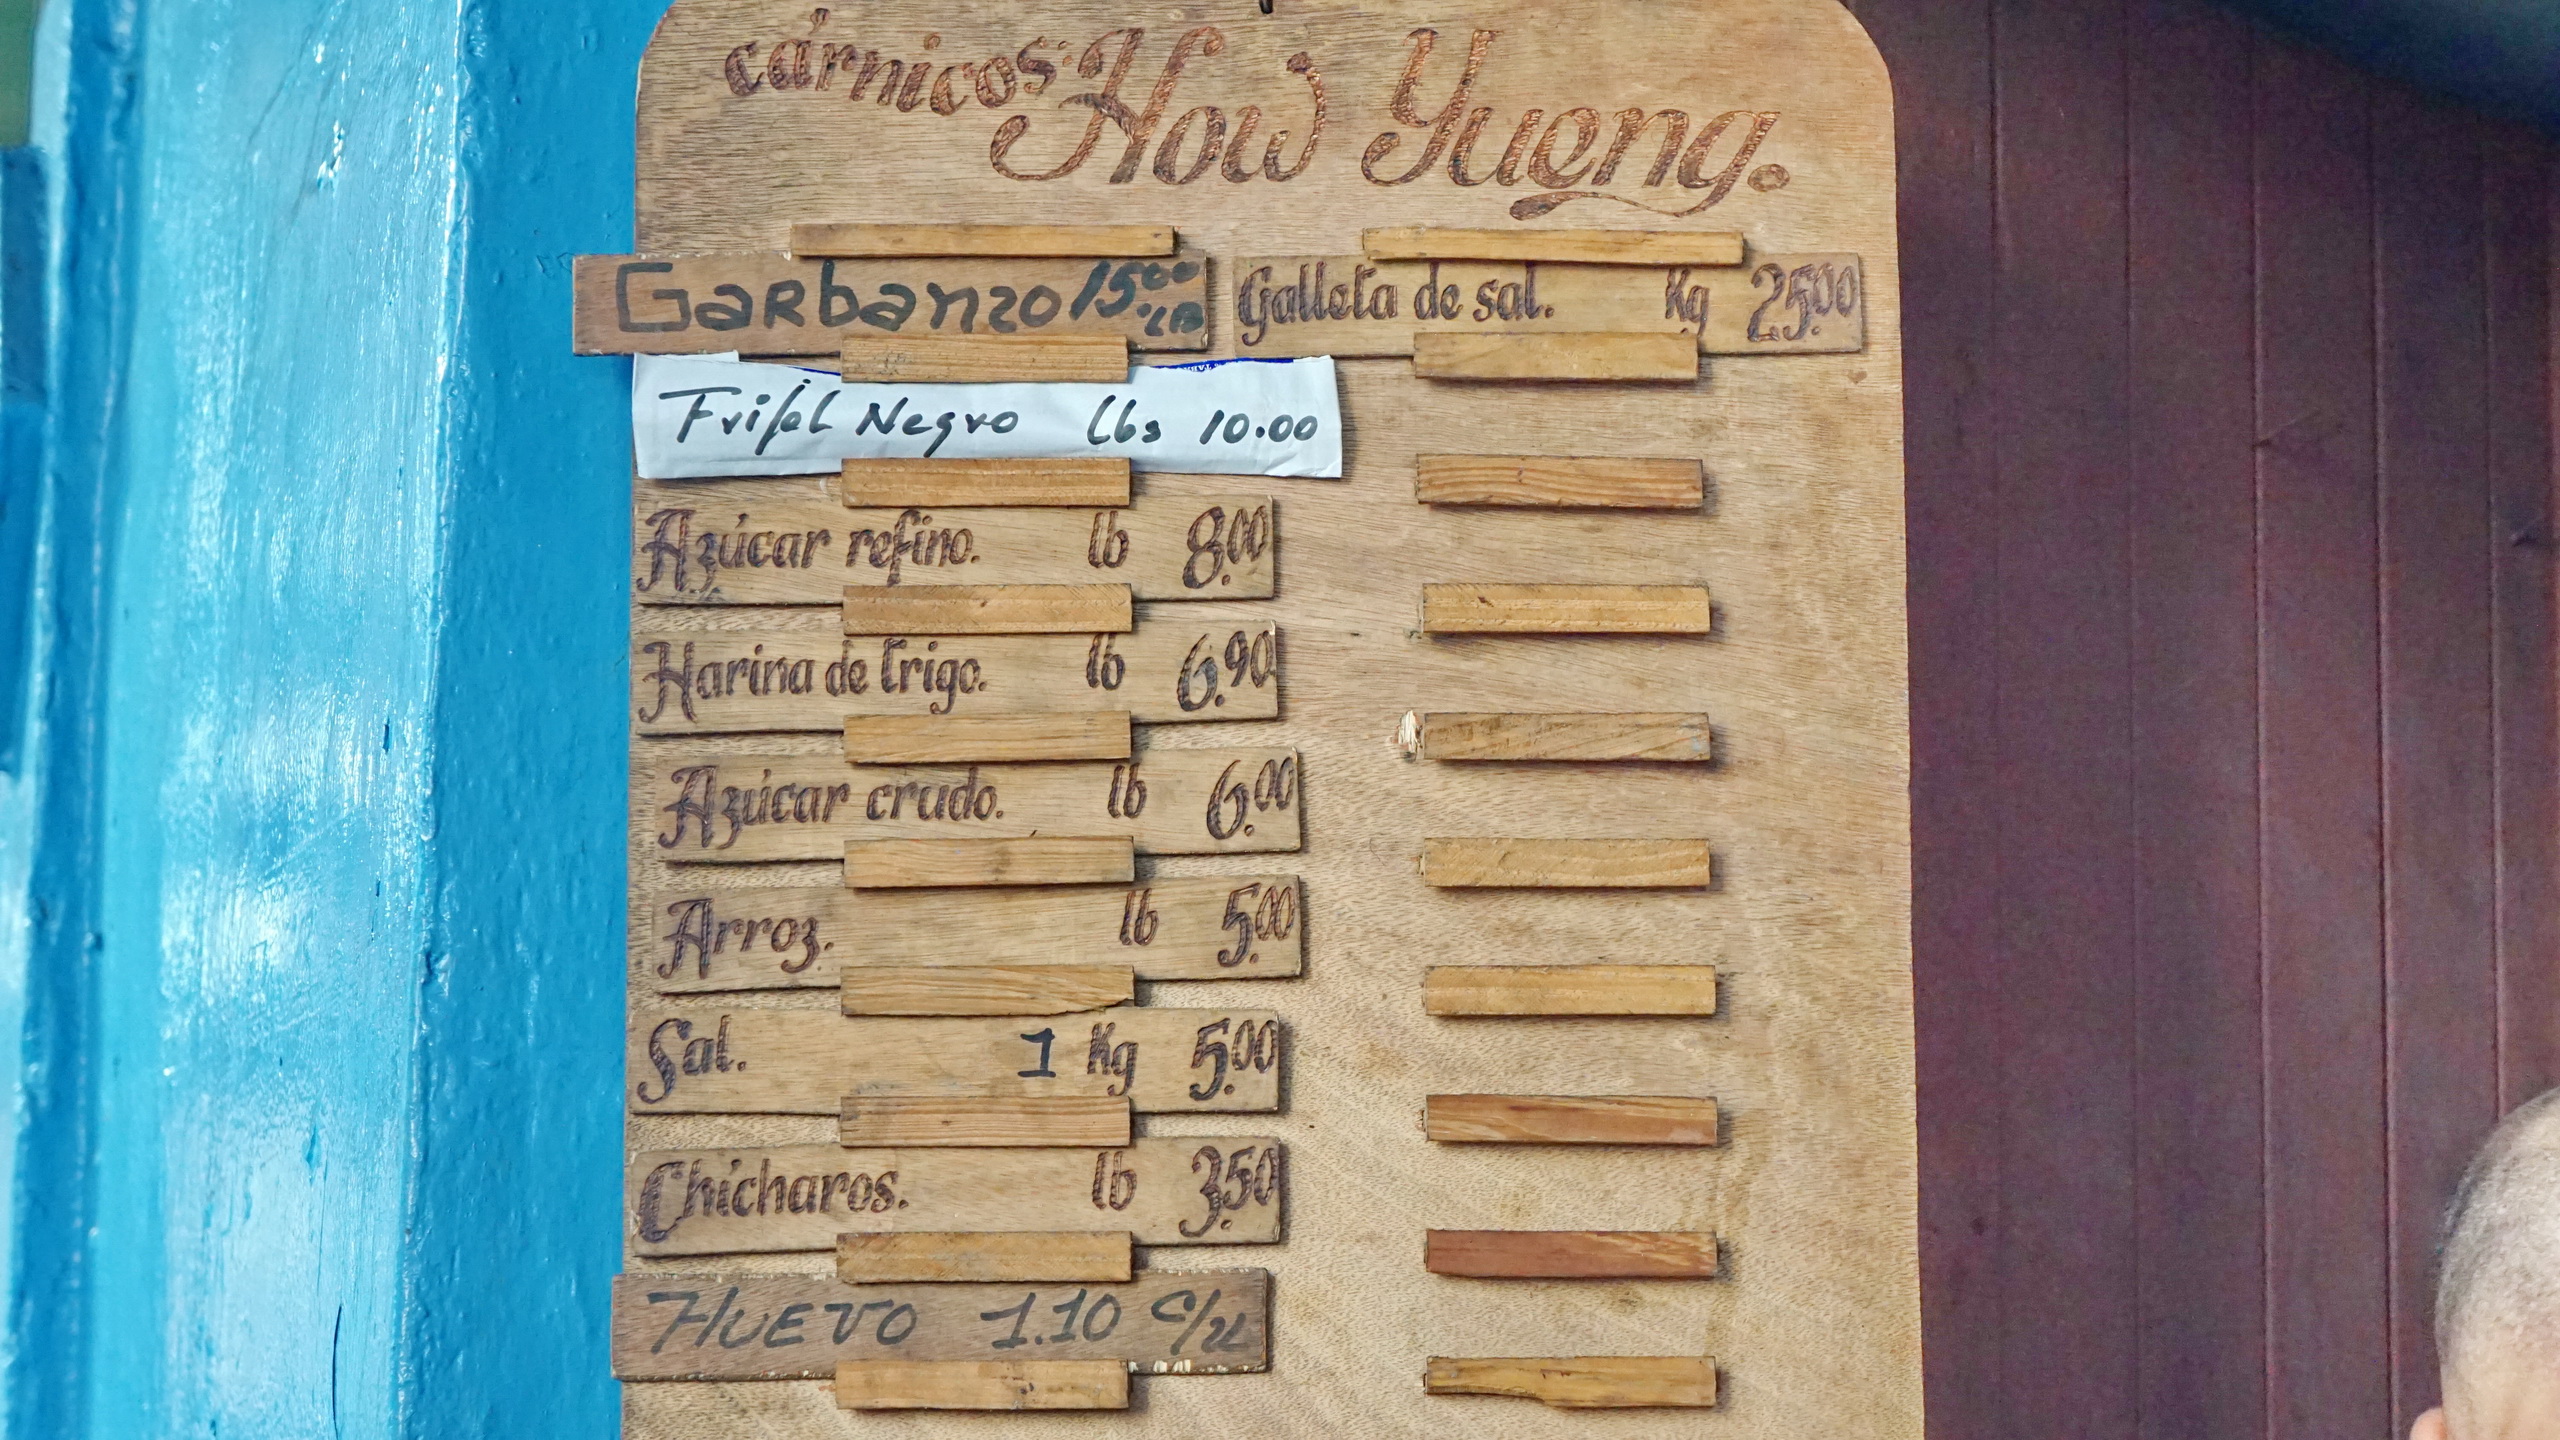 cárnicos: How Yueng.
Garbanzo 15.00 LB
Galleta de sal. Kg 25.00
Frijol Negro lbs 10.00
Azúcar refino. lb 8.00
Harina de trigo. lb 6.90
Azúcar crudo. lb 6.00
Arroz. lb 5.00
Sal. 1 Kg 5.00
Chícharos. lb 3.50
HUEVO 1.10 c/u